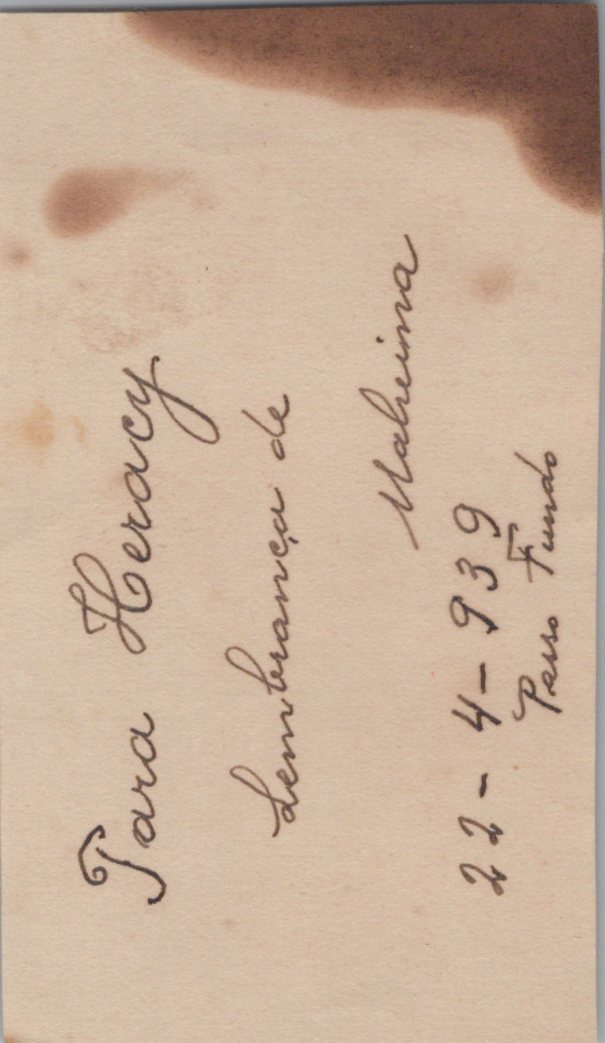 Para Heracy
Lembrança de
22-4-939
Passo Fundo